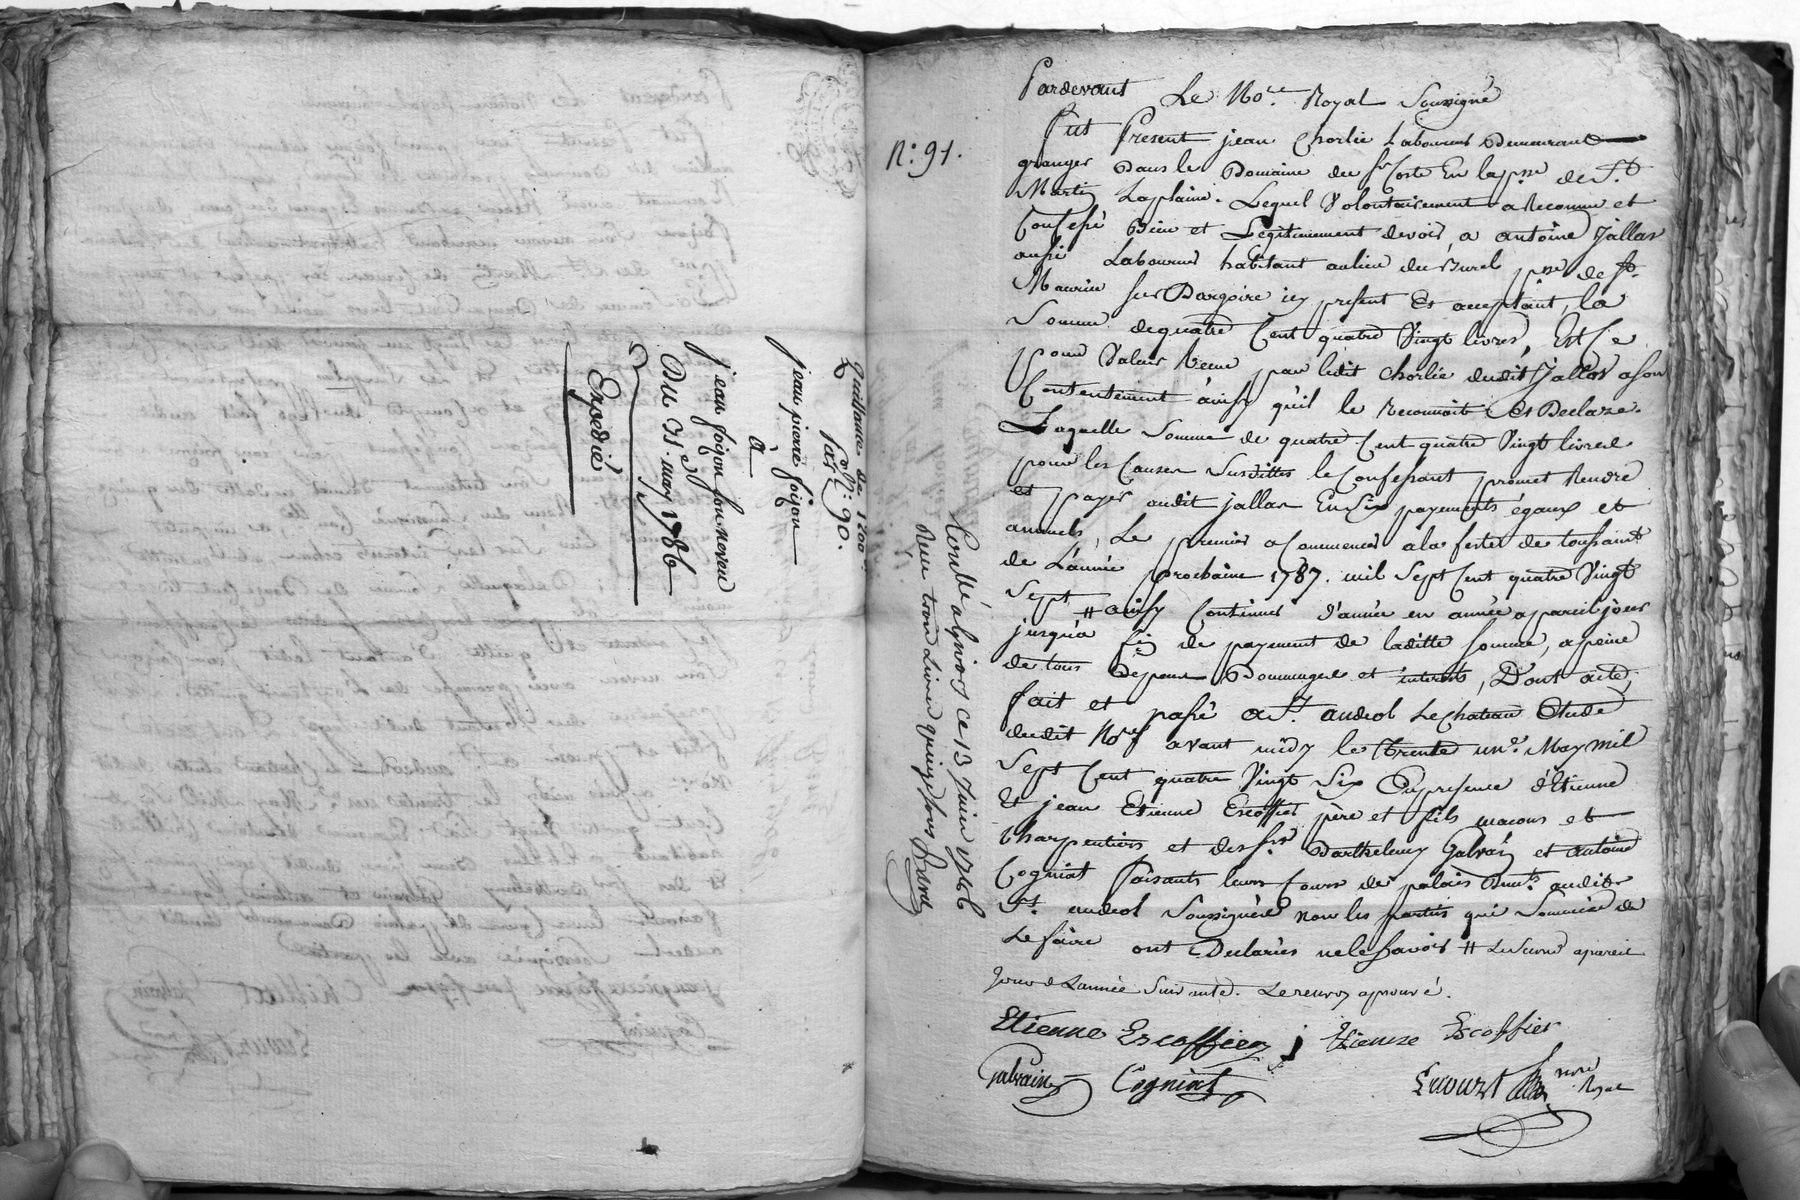 quittance de 1200#
Par Coll: 90.
jean pierre foijon
à
jean foijon son neveu
Du 31e may 1786
Expedié
N:° 91.
Pardevant Le No.re Royal Soussigné
fut Present jean Chorlie Laboureur Demeurant
granger Dans le Domaine du Sr Coste En la psse de St
Martin Laplaine. Lequel Volontairement a Reconnu et
Confessé Bien et Legitimement devoir, a antoine Jallas
aussi Laboureur habitant au lieu du Burel psse de St.
Maurice sur Dargoire icy present Et acceptant, la
Somme de quatre Cent quatre Vingt livres, Est Ce
pour Valeur Receue par ledit Chorlie dudit Jallas a son
Contentement ainsy qu'il le Reconnoit Et Declare.
Laquelle Somme de quatre Cent quatre Vingt livres
pour les Causes Susdittes le Confessant promet Rendre
et payer audit jallas En Six payements égaux et
annuels, Le premier a Commencer a la feste de toussaint
de L'année prochaine 1787. mil Sept Cent quatre Vingt
Sept # ainsy Continuer d'année en année a pareil jour
jusqu'a fin de payement de laditte somme, a peine
de tous Depens Dommages et interets, Dont acte,
fait et passé a St. andeol Le Chateau Etude
dudit Nore avant midy le trente un.e May mil
Sept Cent quatre Vingt Six En presence d'Etienne
Et jean Etienne Escoffier père et fils macons et
Charpentiers et des Srs Barthelemy Galvain et antoine
Cogniat faisants leurs Cours de palais Demts. audit
St. andeol Soussignéee non les parties qui Sommées de
Le faire ont Declarées ne le Savoir # Le Second a pareil
Jour de L'année Suivante. Le renvoy aprouvé.
Etienne Escoffier j Etienne Escoffier
Galvain Cogniat
nore Royal
Conllé a givors ce 13 Juin 1786
Reçu trois Livres quinze sous